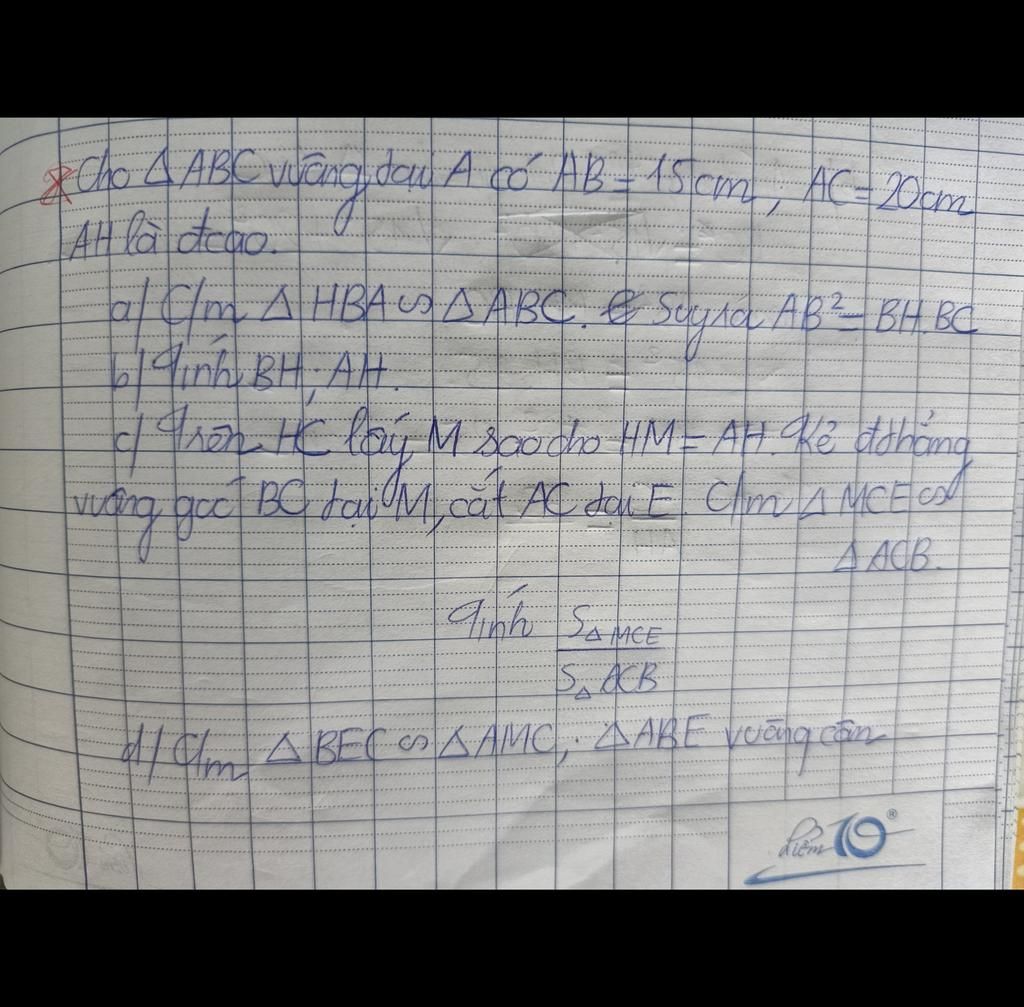 Cho △ABC vuông tại A có AB = 15cm, AC = 20cm
AH là đcao.
a/ C/m △HBA ∽ △ABC. Suy ra AB² = BH.BC
b/ Tính BH; AH.
c/ Trên HC lấy M sao cho HM = AH. Kẻ đthẳng
vuông góc BC tại M, cắt AC tại E. C/m △MCE ∽
△ACB.
Tính S△MCE / S△ACB
d/ C/m △BEC ∽ △AMC, △ABE vuông cân
điểm 10 ®